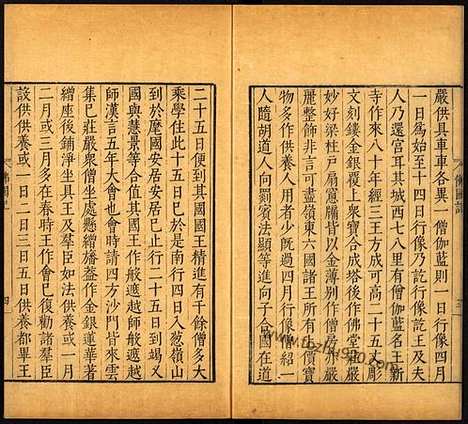 嚴供具車車各異一僧伽藍則一日行像四月
一日為始至十四日行像乃訖行像訖王及夫
人乃還宮耳其城西七八里有僧伽藍名王新
寺作來八十年經三王方成可高二十五丈彫
文刻鏤金銀覆上眾寶合成塔後作佛堂莊嚴
妙好梁柱戶扇窗牖皆以金薄別作僧房亦嚴
麗整飾非言可盡嶺東六國諸王所有上價寶
物多作供養人用者少既過四月行像僧紹一
人隨胡道人向罽賓法顯等進向子合國在道
二十五日便到其國國王精進有千餘僧多大
乘學住此十五日已於是南行四日入葱嶺山
到於麾國安居安居已止行二十五日到竭叉
國與慧景等合值其國王作般遮越師般遮越
師漢言五年大會也會時請四方沙門皆來雲
集已莊嚴眾僧坐處懸繒旛葢作金銀蓮華著
繒座後鋪淨坐具王及羣臣如法供養或一月
二月或三月多在春時王作會已復勸諸羣臣
設供養或一日二日三日五日供養都畢王
佛國記
三
四